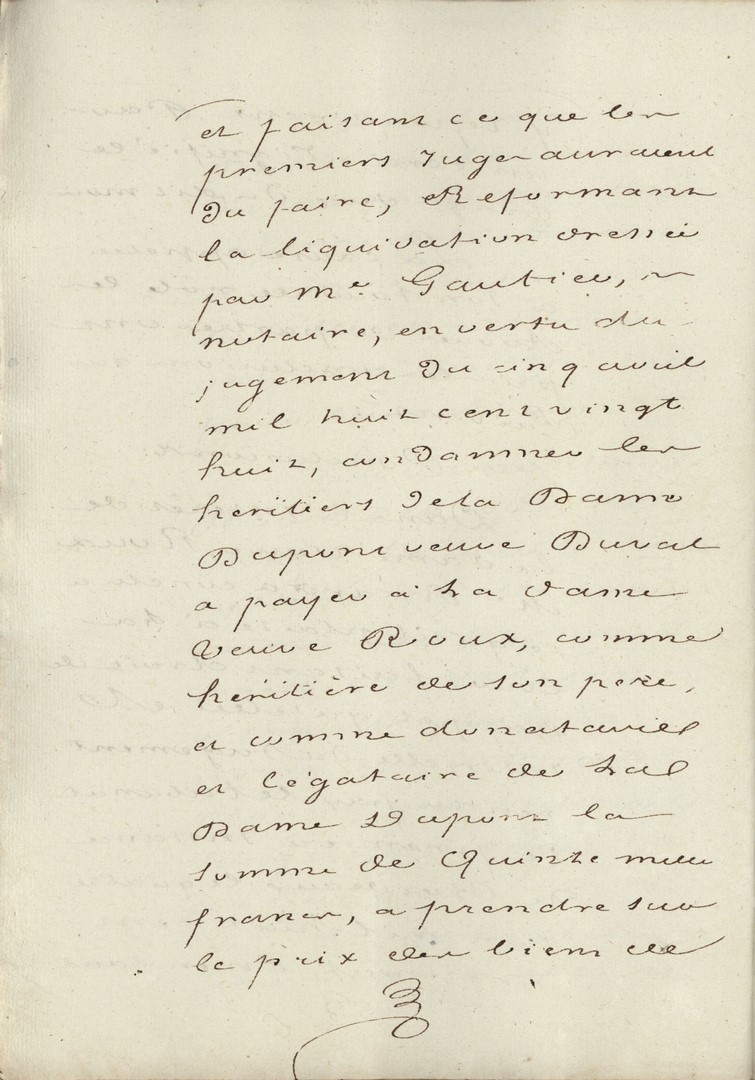 et faisant ce que les
premiers Juges auraient
Du faire, Reformant
la liquidation dressée
par Me. Gautier,
notaire, en vertu du
jugement Du cinq avril
mil huit cent vingt
huit, condamner les
heritiers de la Dame
Dupont veuve Duval
a payer à la dame
Veuve Roux, comme
héritière de son pere,
et comme donataire
et légataire de la
Dame Dupont la
somme de Quinze mille
francs, a prendre sur
le prix des biens de